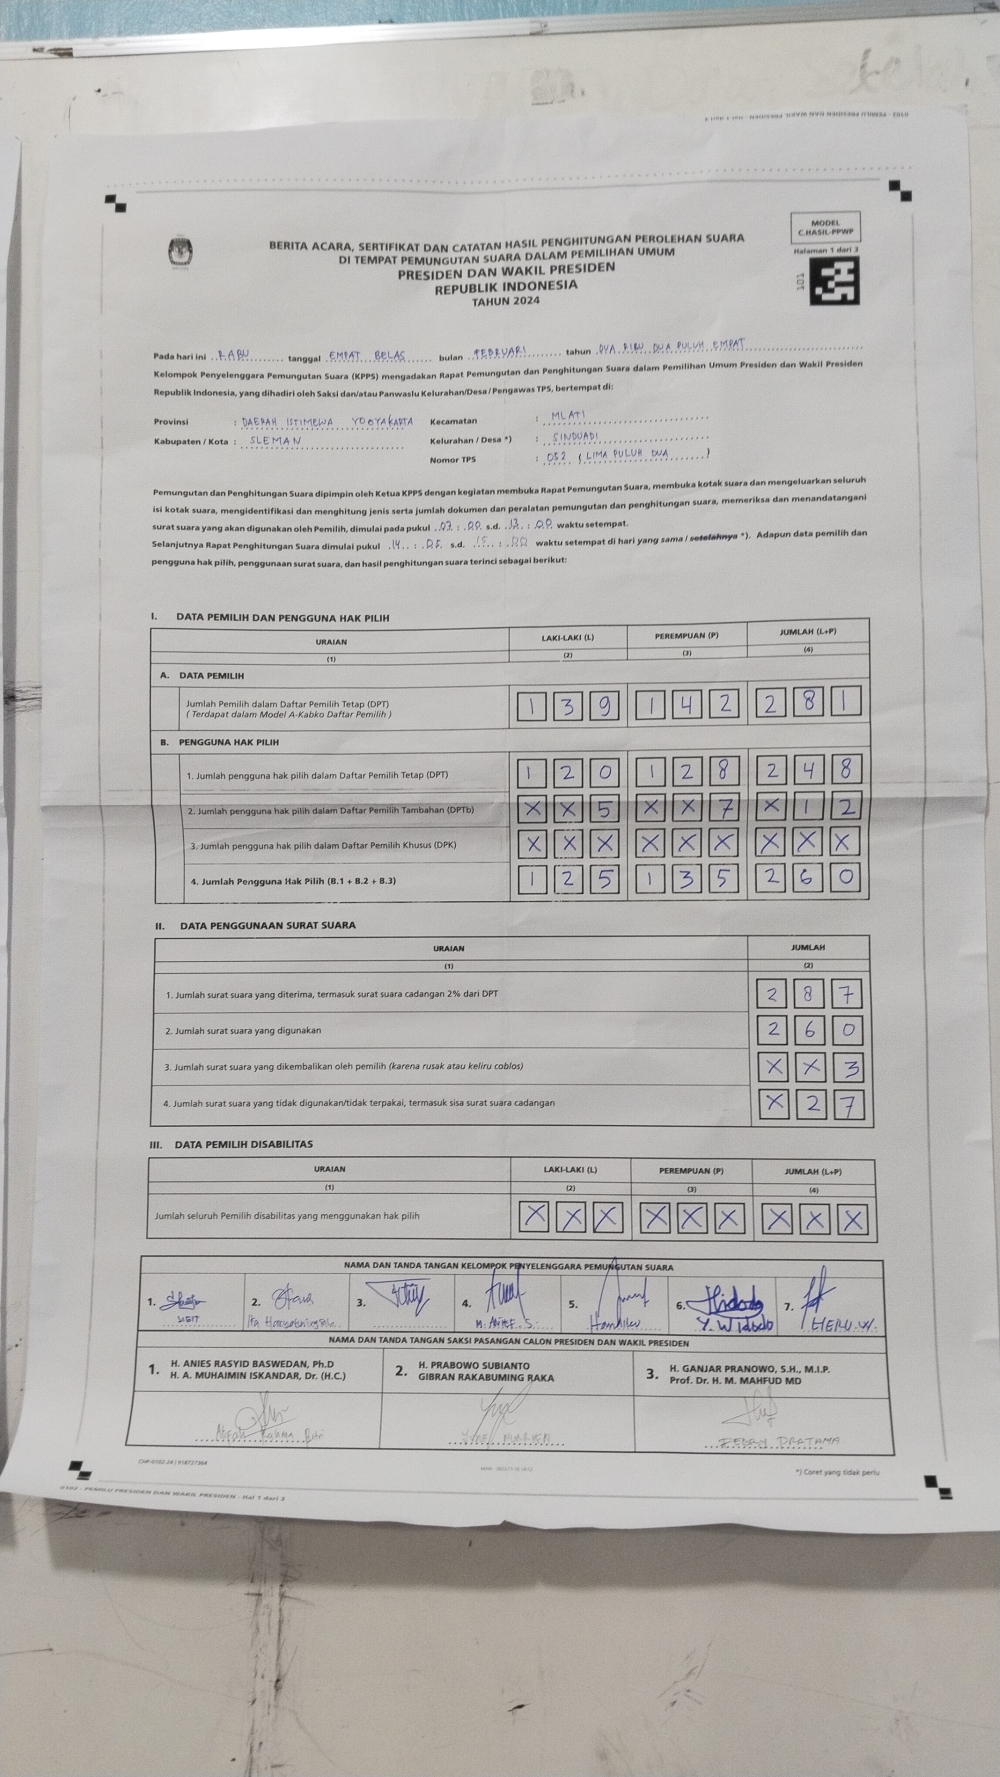 0102 - PEMILU PRESIDEN DAN WAKIL PRESIDEN - Hal 1 dari 3
MODEL
C.HASIL-PPWP
Halaman 1 dari 3
101
BERITA ACARA, SERTIFIKAT DAN CATATAN HASIL PENGHITUNGAN PEROLEHAN SUARA
DI TEMPAT PEMUNGUTAN SUARA DALAM PEMILIHAN UMUM
PRESIDEN DAN WAKIL PRESIDEN
REPUBLIK INDONESIA
TAHUN 2024
Pada hari ini RABU tanggal EMPAT BELAS bulan FEBRUARI tahun DUA RIBU DUA PULUH EMPAT
Kelompok Penyelenggara Pemungutan Suara (KPPS) mengadakan Rapat Pemungutan dan Penghitungan Suara dalam Pemilihan Umum Presiden dan Wakil Presiden
Republik Indonesia, yang dihadiri oleh Saksi dan/atau Panwaslu Kelurahan/Desa / Pengawas TPS, bertempat di:
Provinsi : DAERAH ISTIMEWA YOGYAKARTA Kecamatan : MLATI
Kabupaten / Kota : SLEMAN Kelurahan / Desa *) : SINDUADI
Nomor TPS : 052 (LIMA PULUH DUA)
Pemungutan dan Penghitungan Suara dipimpin oleh Ketua KPPS dengan kegiatan membuka Rapat Pemungutan Suara, membuka kotak suara dan mengeluarkan seluruh
isi kotak suara, mengidentifikasi dan menghitung jenis serta jumlah dokumen dan peralatan pemungutan dan penghitungan suara, memeriksa dan menandatangani
surat suara yang akan digunakan oleh Pemilih, dimulai pada pukul 07 : 00 s.d. 13 : 00 waktu setempat.
Selanjutnya Rapat Penghitungan Suara dimulai pukul 14 : 05 s.d. 15 : 00 waktu setempat di hari yang sama / setelahnya *). Adapun data pemilih dan
pengguna hak pilih, penggunaan surat suara, dan hasil penghitungan suara terinci sebagai berikut:
I. DATA PEMILIH DAN PENGGUNA HAK PILIH
URAIAN LAKI-LAKI (L) PEREMPUAN (P) JUMLAH (L+P)
(1) (2) (3) (4)
A. DATA PEMILIH
Jumlah Pemilih dalam Daftar Pemilih Tetap (DPT) 1 3 9 1 4 2 2 8 1
( Terdapat dalam Model A-Kabko Daftar Pemilih )
B. PENGGUNA HAK PILIH
1. Jumlah pengguna hak pilih dalam Daftar Pemilih Tetap (DPT) 1 2 0 1 2 8 2 4 8
2. Jumlah pengguna hak pilih dalam Daftar Pemilih Tambahan (DPTb) X X 5 X X 7 X 1 2
3. Jumlah pengguna hak pilih dalam Daftar Pemilih Khusus (DPK) X X X X X X X X X
4. Jumlah Pengguna Hak Pilih (B.1 + B.2 + B.3) 1 2 5 1 3 5 2 6 0
II. DATA PENGGUNAAN SURAT SUARA
URAIAN JUMLAH
(1) (2)
1. Jumlah surat suara yang diterima, termasuk surat suara cadangan 2% dari DPT 2 8 7
2. Jumlah surat suara yang digunakan 2 6 0
3. Jumlah surat suara yang dikembalikan oleh pemilih (karena rusak atau keliru coblos) X X 3
4. Jumlah surat suara yang tidak digunakan/tidak terpakai, termasuk sisa surat suara cadangan X 2 7
III. DATA PEMILIH DISABILITAS
URAIAN LAKI-LAKI (L) PEREMPUAN (P) JUMLAH (L+P)
(1) (2) (3) (4)
Jumlah seluruh Pemilih disabilitas yang menggunakan hak pilih X X X X X X X X X
NAMA DAN TANDA TANGAN KELOMPOK PENYELENGGARA PEMUNGUTAN SUARA
1. 2. 3. 4. 5. 6. 7.
M. ARIEF. S. Y. Widodo HERU.W.
NAMA DAN TANDA TANGAN SAKSI PASANGAN CALON PRESIDEN DAN WAKIL PRESIDEN
1. H. ANIES RASYID BASWEDAN, Ph.D
H. A. MUHAIMIN ISKANDAR, Dr. (H.C.)
2. H. PRABOWO SUBIANTO
GIBRAN RAKABUMING RAKA
3. H. GANJAR PRANOWO, S.H., M.I.P.
Prof. Dr. H. M. MAHFUD MD
Rahma Putri DEDDY PRATAMA
*) Coret yang tidak perlu
0102 - PEMILU PRESIDEN DAN WAKIL PRESIDEN - Hal 1 dari 3